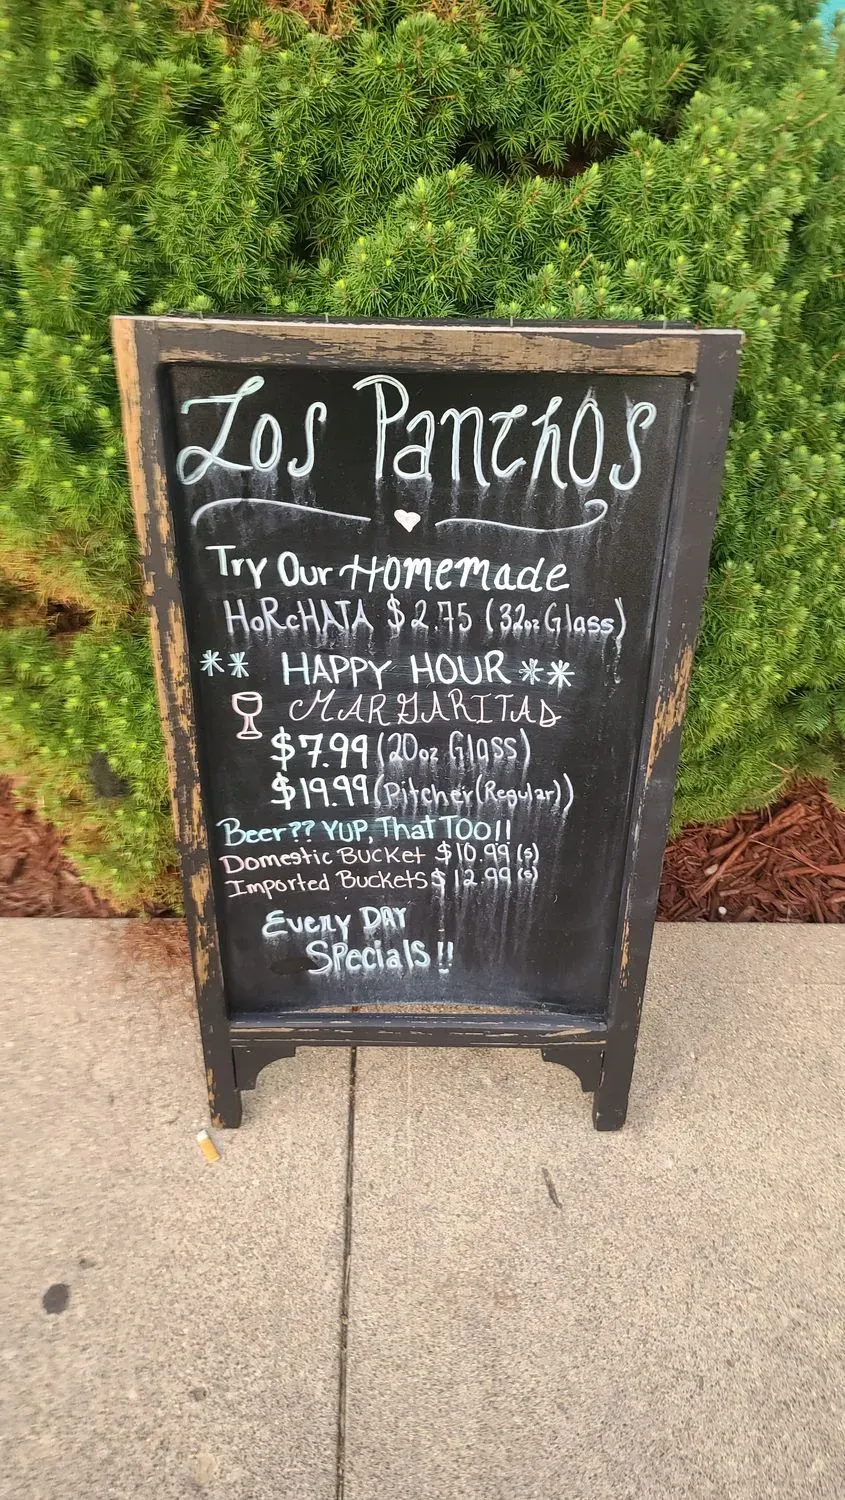 Los Panchos
Try Our Homemade
HoRcHATA $2.75 (32oz Glass)
** HAPPY HOUR **
MARGARITAS
$7.99 (20oz Glass)
$19.99 (Pitcher (Regular))
Beer?? YUP, That TOO!!
Domestic Bucket $10.99 (5)
Imported Buckets $12.99 (5)
Every DAY
Specials!!